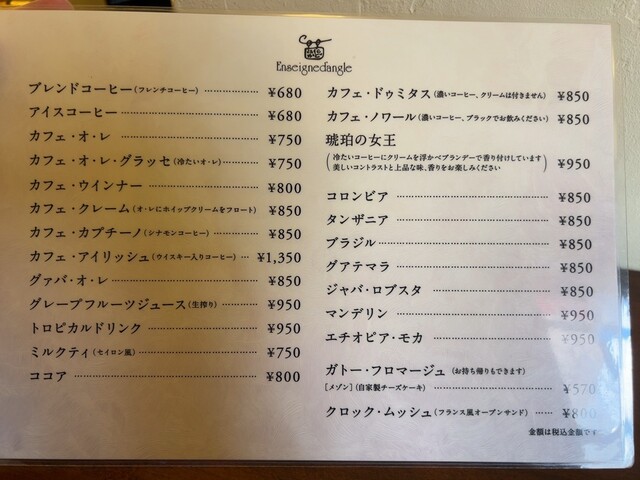 Enseignedangle
ブレンドコーヒー(フレンチコーヒー) ¥680
アイスコーヒー ¥680
カフェ・オ・レ ¥750
カフェ・オ・レ・グラッセ(冷たいオ・レ) ¥750
カフェ・ウインナー ¥800
カフェ・クレーム(オ・レにホイップクリームをフロート) ¥850
カフェ・カプチーノ(シナモンコーヒー) ¥850
カフェ・アイリッシュ(ウイスキー入りコーヒー) ¥1,350
グァバ・オ・レ ¥850
グレープフルーツジュース(生搾り) ¥950
トロピカルドリンク ¥950
ミルクティ(セイロン風) ¥750
ココア ¥800
カフェ・ドゥミタス(濃いコーヒー、クリームは付きません) ¥850
カフェ・ノワール(濃いコーヒー、ブラックでお飲みください) ¥850
琥珀の女王
(冷たいコーヒーにクリームを浮かべブランデーで香り付けしています
美しいコントラストと上品な味、香りをお楽しみください) ¥950
コロンビア ¥850
タンザニア ¥850
ブラジル ¥850
グアテマラ ¥850
ジャバ・ロブスタ ¥850
マンデリン ¥950
エチオピア・モカ ¥950
ガトー・フロマージュ (お持ち帰りもできます)
[メゾン](自家製チーズケーキ) ¥570
クロック・ムッシュ(フランス風オープンサンド) ¥800
金額は税込金額です